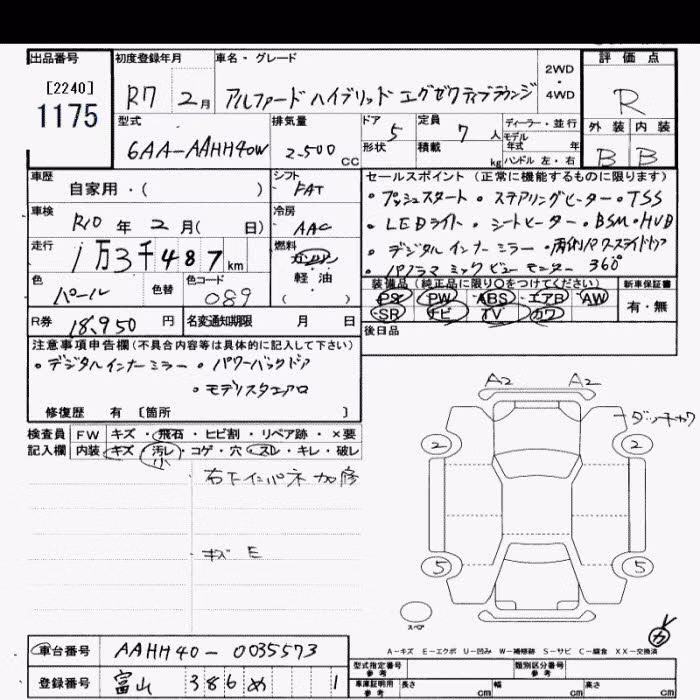 出品番号 初度登録年月 車名・グレード 2WD・4WD 評価点
[2240]
1175
R7 2月 アルファード ハイブリッド エグゼクティブラウンジ R
型式 排気量 ドア 5 定員 7人 ディーラー・並行 外装 内装
6AA-AAHH40W 2.500 CC 形状 積載 kg モデル年式 年 B B
ハンドル 左・右
車歴 シフト セールスポイント (正常に機能するものに限ります)
自家用・( ) FAT ・プッシュスタート・ステアリングヒーター・TSS
車検 冷房 ・LEDライト・シートヒーター・BSM・HUD
R10 年 2 月( 日) AAC ・デジタルインナーミラー・両側パワースライドドア
走行 燃料 ・パノラミックビューモニター 360°
1万3千487km ガソリン
軽油
( )
色 色替 色コード 装備品 (純正品に限り○をつけてください) 新車保証書
パール 089 PS PW ABS エアB AW 有・無
SR ナビ TV カワ
R券 18,950 円 名変通知期限 月 日 後日品
注意事項申告欄(不具合内容等は具体的に記入して下さい)
・デジタルインナーミラー ・パワーバックドア
・モデリスタエアロ
修復歴 有 〔箇所 〕
検査員 FW キズ・飛石・ヒビ割・リペア跡・×要
記入欄 内装 キズ・汚レ・コゲ・穴・スレ・キレ・破レ
小
右下インパネ加修
キズ E
A2 A2
ダッチャク
2 2
5 5
スペア
カ
A-キズ E-エクボ U-凹み W-補修跡 S-サビ C-腐食 XX-交換済
車台番号 AAHH40-0035573
型式指定番号 参考 類別区分番号 参考
登録番号 富山 386 め 1
車庫証明用 参考 長さ cm 幅 cm 高さ cm